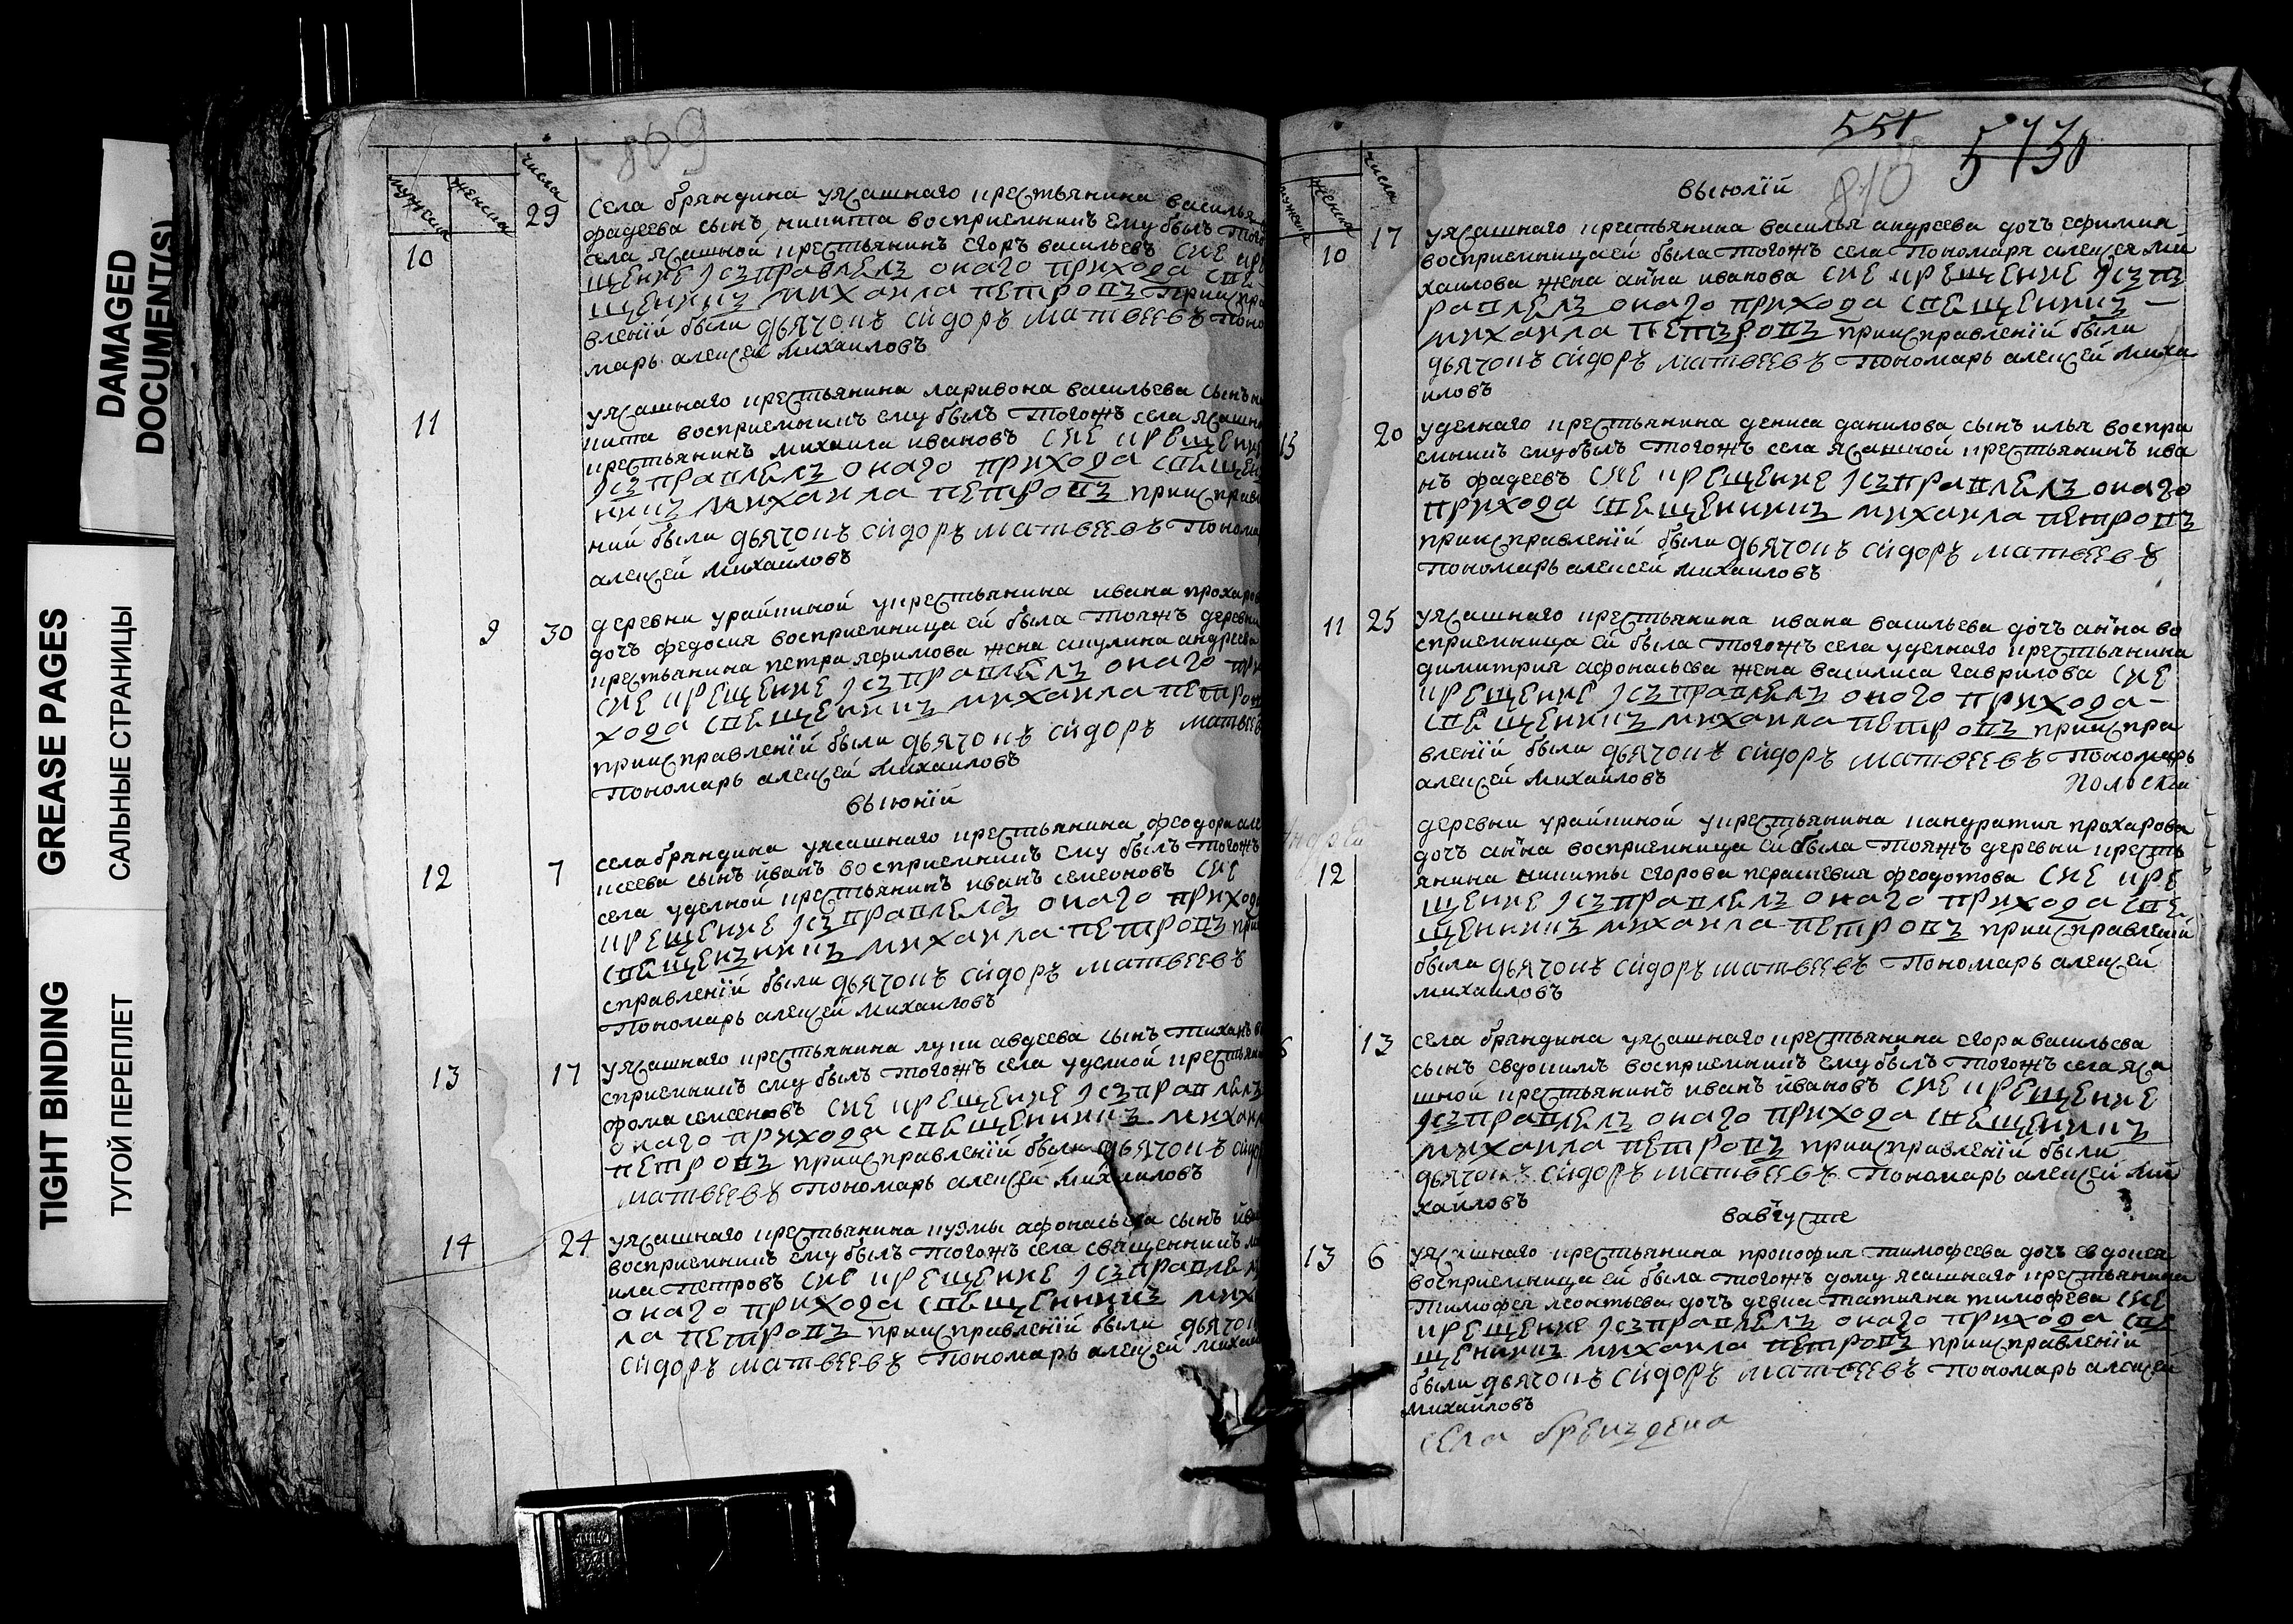 DAMAGED
DOCUMENT(S)
GREASE PAGES
САЛЬНЫЕ СТРАНИЦЫ
TIGHT BINDING
ТУГОЙ ПЕРЕПЛЕТ
869
мужеска женска числа
29 Села бряндина уясашнаго крестьянина василья
фадеева сынъ никита восприемникъ ему былъ того
10 села ясашной крестьянинъ егоръ васильевъ сие кре
щение исправлелъ онаго прихода све
щенникъ михаила петровъ приисpра
вленiй были дьячокъ сидоръ матвеевъ поно
марь алексей михаиловъ
11 уясашнаго крестьянина ларивона васильева сынъ ни
кита восприемникъ ему былъ тогожъ села ясашно
крестьянинъ михаила ивановъ сие крещение
исправлелъ онаго прихода свещен
никъ михаила петровъ приисправле
нiй были дьячокъ сидоръ матвеевъ понома
алексей михайловъ
9 30 деревни урайкиной укрестьянина ивана прохаров
дочъ федосия восприемница ей была тояжъ деревни
крестьянина петра яфимова жена акулина андреева
сие крещение исправлелъ онаго при
хода свещенникъ михаила петров
приисправленiй были дьячокъ сидоръ матвеев
пономарь алексей михаиловъ
выюнiй
12 7 села бряндина уясашнаго крестьянина феодора але
ксеева сынъ иванъ восприемникъ ему былъ тогожъ
села уделной крестьянинъ иванъ семеоновъ сие
крещение исправлелъ онаго прихода
свещензникъ михаила петровъ при
справленiй были дьячокъ сидоръ матвеевъ
пономарь алексей михаиловъ
13 17 уясашнаго крестьянина луки авдеева сынъ тиханъ во
сприемникъ ему былъ тогожъ села уделной крестьян
фома семееновъ сие крещение исправлелъ
онаго прихода свещенникъ михаил
петровъ приисправленiй были дьячокъ сидор
матвеевъ пономарь алексей михаиловъ
14 24 уясашнаго крестьянина кузмы афонасьева сынъ ива
восприемникъ ему былъ тогожъ села священникъ ми
ила петровъ сие крещение исправлел
онаго прихода свещенникъ миха
ла петровъ приисправленiй были дьячок
сидоръ матвеевъ пономарь алексей михаил
551 5730
810
мужеска женска числа
выюлiй
10 17 уясашнаго крестьянина василья андреева дочъ ефимия
восприемницаей была тогожъ села пономаря алексея ми
хаилова жена анна иванова сие крещение исп
равлелъ онаго прихода свещенникъ —
михаила петзровъ приисправленiй были
дьячокъ сидоръ матвеевъ пономарь алексей миха
иловъ
15 20 уделнаго крестьянина дениса данилова сынъ илья воспри
емникъ емубылъ тогожъ села ясашной крестьянинъ ива
нъ фадеевъ сие крещение исправлелъ онаго
прихода свещенникъ михаила петровъ
приисправленiй были дьячокъ сидоръ матвеевъ
пономарь алексей михаиловъ
11 25 уясашнаго крестьянина ивана васильева дочъ анна во
сприемница ей была тогожъ села уделнаго крестьянина
димитрия афонасьева жена василиса гаврилова сие
крещение исправлелъ онаго прихода —
свещенникъ михаила петровъ приисpра
вленiй были дьячокъ сидоръ матвеевъ пономарь
алексей михаиловъ
деревни урайкиной укрестьянина панкратия прохарова
дочъ анна восприемница ей была тояжъ деревни кресть
12 янина никиты егорова параскевия феодотова сие кре
щение исправлелъ онаго прихода све
щенникъ михаила петровъ приисправленiй
были дьячокъ сидоръ матвеевъ пономарь алексей
михаиловъ
6 13 села бряндина уясашнаго крестьянина егора васильева
сынъ евдокимъ восприемникъ ему былъ тогожъ села яса
шной крестьянинъ иванъ ивановъ сие крещение
исправлелъ онаго прихода свещенникъ
михаила петровъ приисправленiй были
дьячокъ сидоръ матвеевъ пономарь алексей ми
хайловъ
вавгусте
13 6 уясашнаго крестьянина прокофия тимофеева дочъ евдокея
восприемница ей была тогожъ дому ясашнаго крестьянина
тимофея леонтьева дочъ девка татияна тимофеева сие
крещение исправлелъ онаго прихода све
щенникъ михаила петровъ приисправленiи
были дьячокъ сидоръ матвеевъ пономарь алексей
михайловъ
села